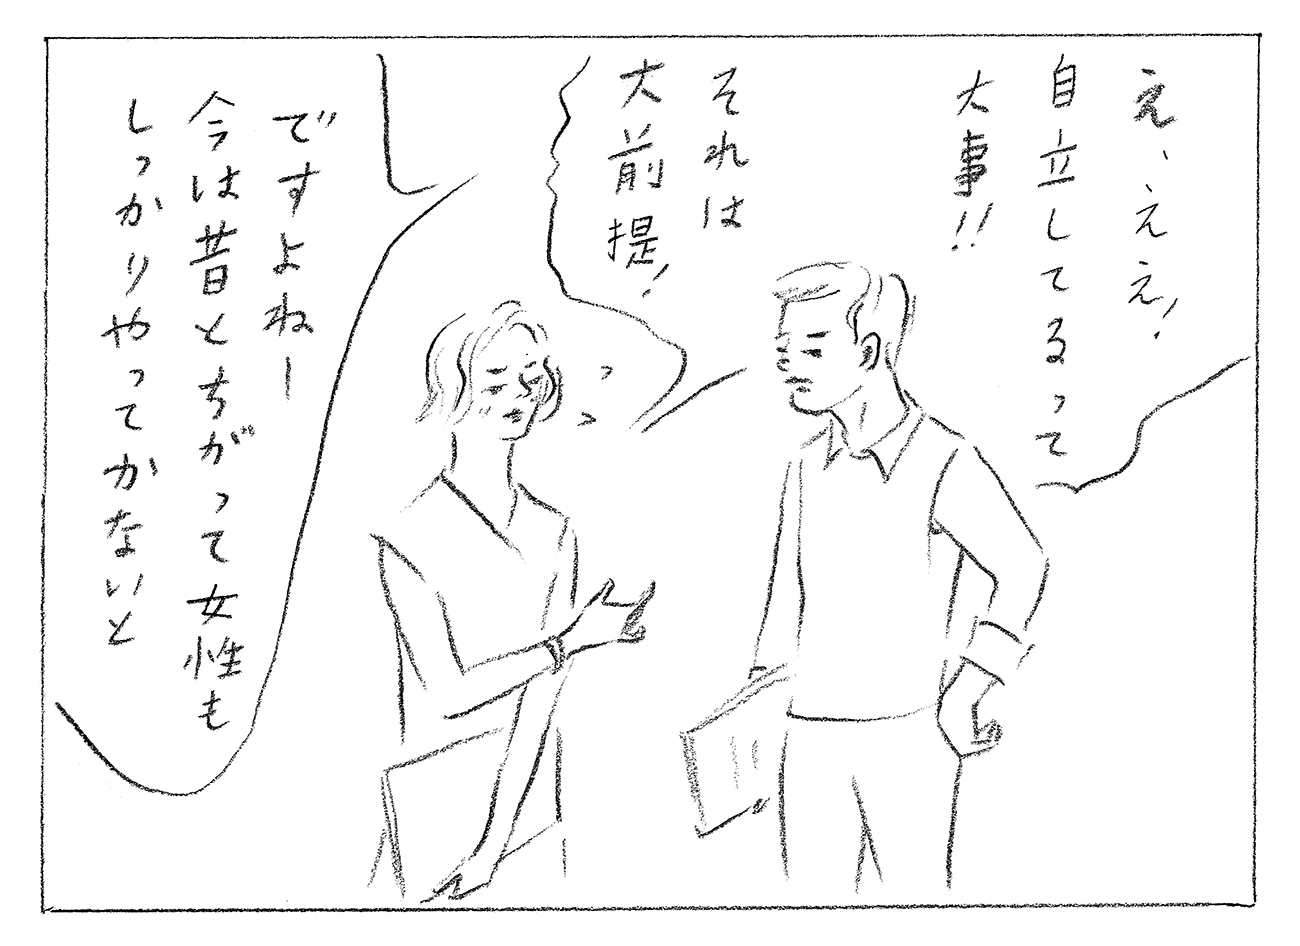 え、ええ!
自立してるって
大事!!
それは
大前提!
ですよねー
今は昔とちがって女性も
しっかりやってかないと